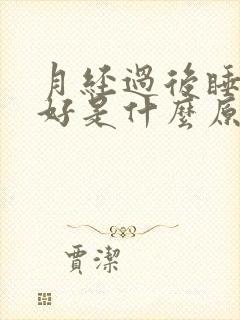 月經過後睡
好是什麼原
賈潔